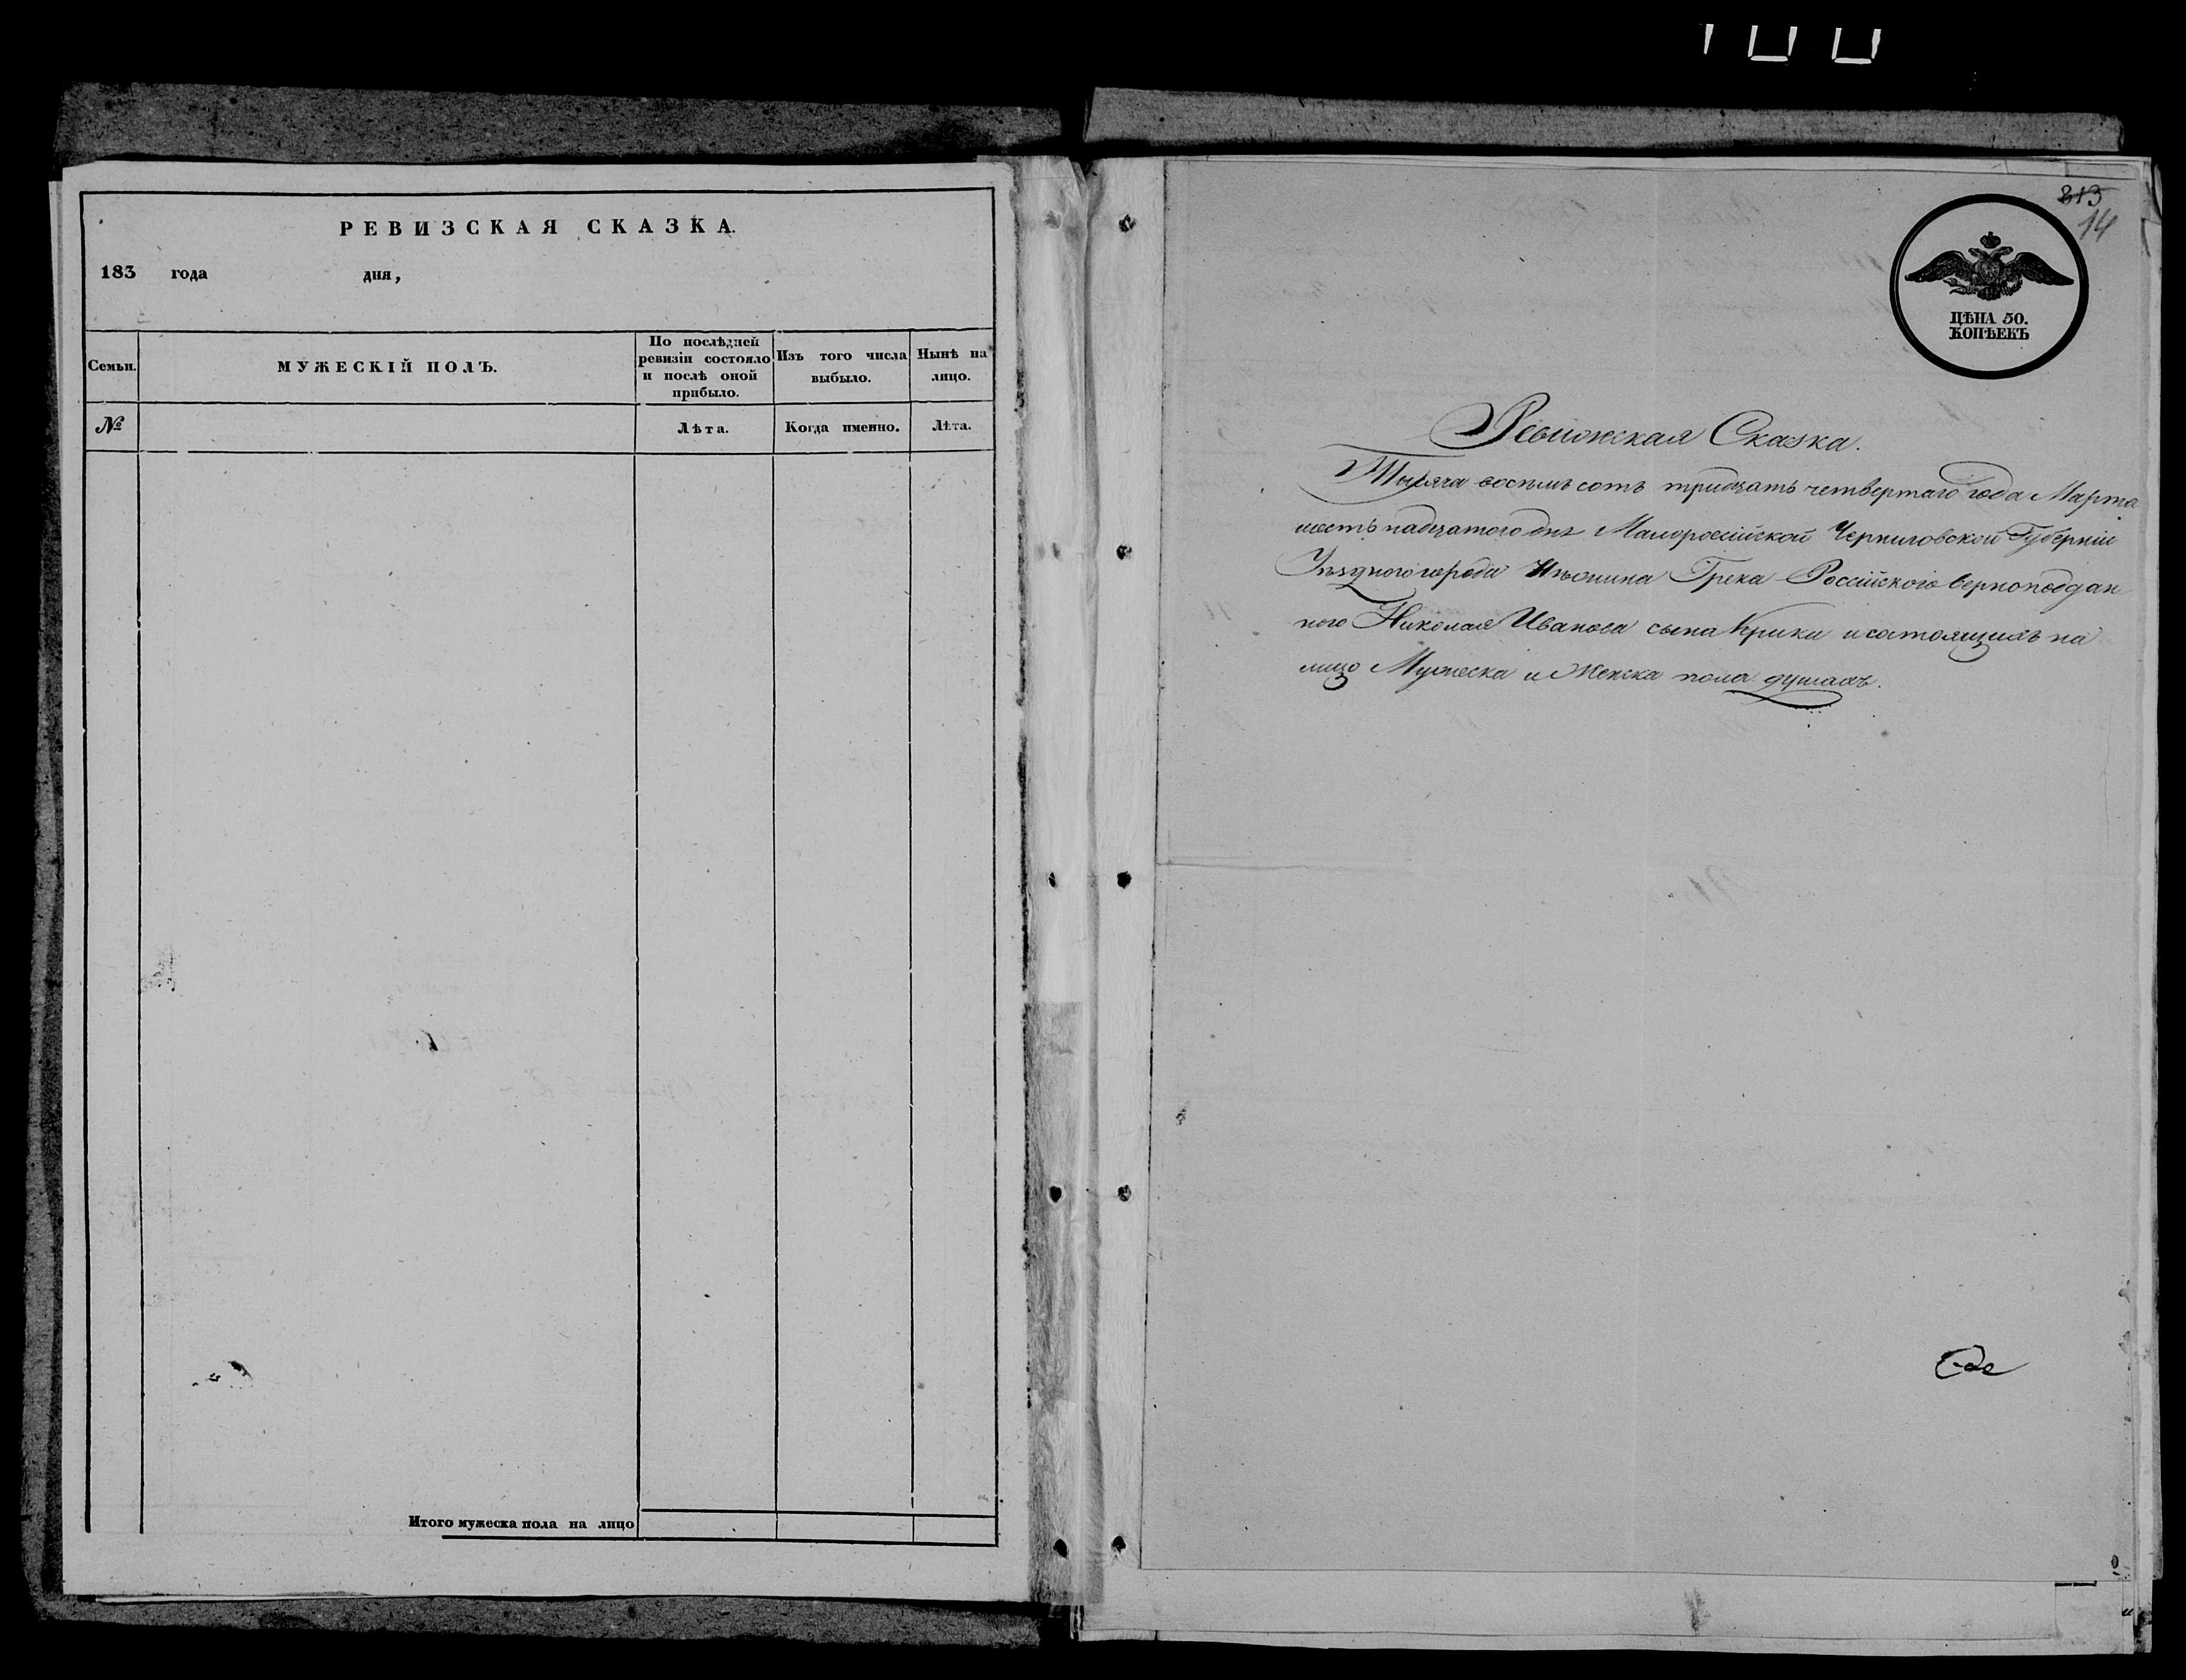 РЕВИЗСКАЯ СКАЗКА.
183 года дня,
Семьи.
МУЖЕСКІЙ ПОЛЪ.
По послѣдней
ревизіи состояло
и послѣ оной
прибыло.
Изъ того числа
выбыло.
Нынѣ на
лицо.
№
Лѣта.
Когда именно.
Лѣта.
Итого мужеска пола на лицо
313
14
ЦѢНА 50.
КОПѢЕКЪ
Ревижская Сказка.
Тысяча восемь сотъ тридцать четвертаго года Марта
шесть надцатого дня Малоросciйской Черниговской Губерніи
Уѣздного города Нѣжина Грека Россійского верноподдан
ного Николая Иванова сына Крики и состоящихъ на
лицо Мужеска и Женска пола душахъ.